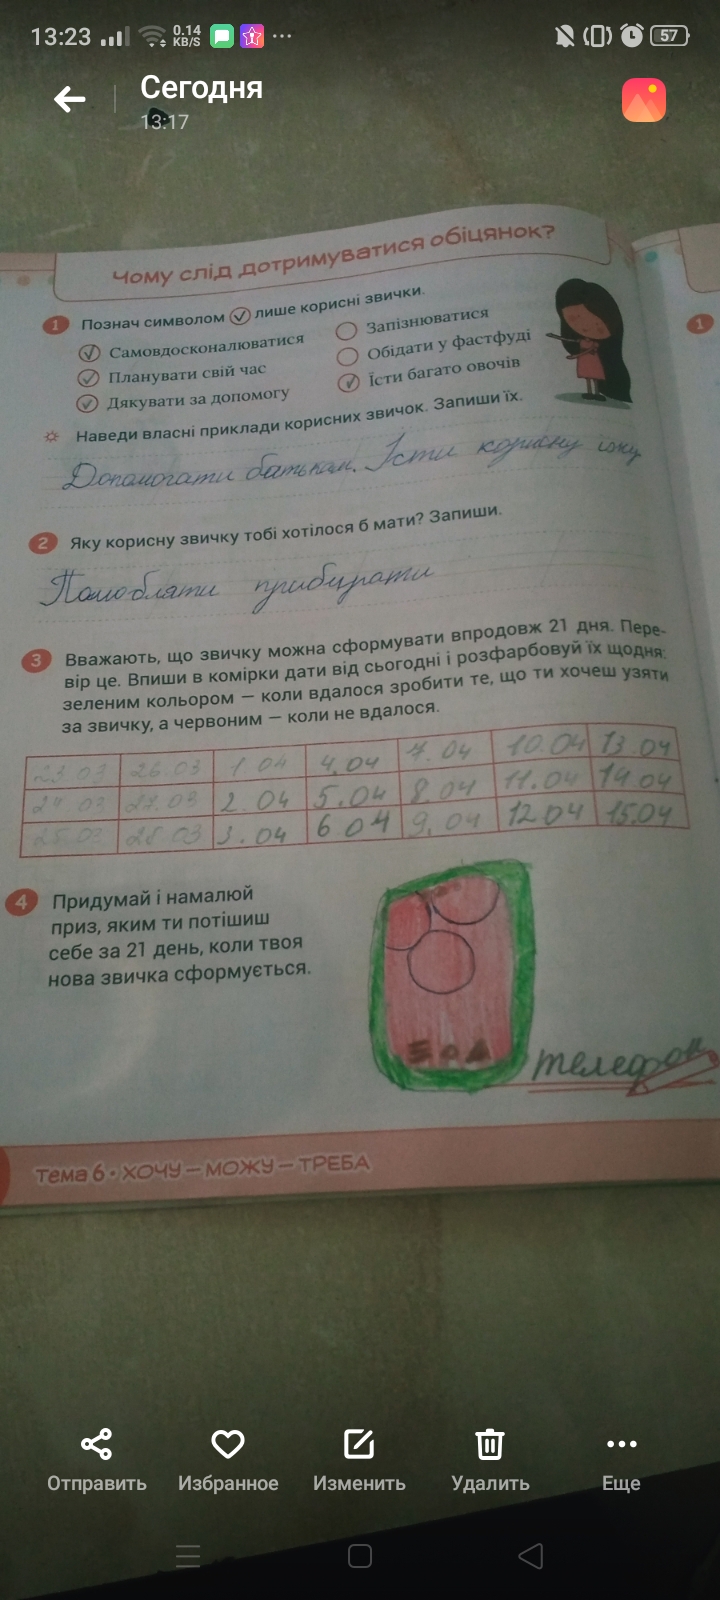 13:23 0.14 KB/S 57
Сегодня
13:17
Чому слід дотримуватися обіцянок?
1 Познач символом лише корисні звички.
Самовдосконалюватися
Планувати свій час
Дякувати за допомогу
Запізнюватися
Обідати у фастфуді
Їсти багато овочів
Наведи власні приклади корисних звичок. Запиши їх.
Допомогати батькам. Їсти корисну їжу
2 Яку корисну звичку тобі хотілося б мати? Запиши.
прибирати
3 Вважають, що звичку можна сформувати впродовж 21 дня. Пере-
вір це. Впиши в комірки дати від сьогодні і розфарбовуй їх щодня:
зеленим кольором — коли вдалося зробити те, що ти хочеш узяти
за звичку, а червоним — коли не вдалося.
23.03 26.03 1.04 4.04 7.04 10.04 13.04
24.03 27.03 2.04 5.04 8.04 11.04 14.04
25.03 28.03 3.04 6.04 9.04 12.04 15.04
4 Придумай і намалюй
приз, яким ти потішиш
себе за 21 день, коли твоя
нова звичка сформується.
телефон
Тема 6 • ХОЧУ — МОЖУ — ТРЕБА
1
Отправить Избранное Изменить Удалить Еще